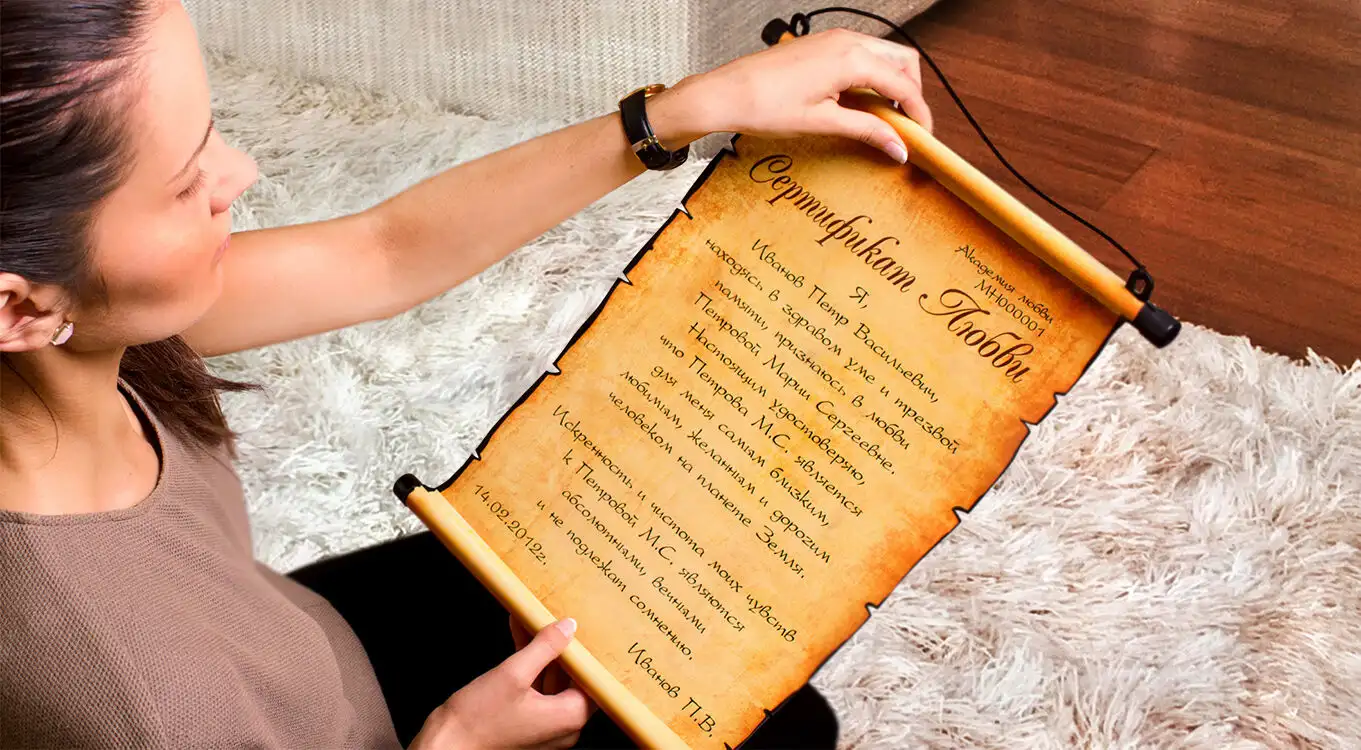 Сертификат Любви
Академия любви
МН000001
Я,
Иванов Петр Васильевич,
находясь в здравом уме и трезвой
памяти, признаюсь в любви
Петровой Марии Сергеевне.
Настоящим удостоверяю,
что Петрова М.С. является
для меня самым близким,
любимым, желанным и дорогим
человеком на планете Земля.
Искренность и чистота моих чувств
к Петровой М.С. являются
абсолютными, вечными
и не подлежат сомнению.
14.02.2012г.
Иванов П.В.